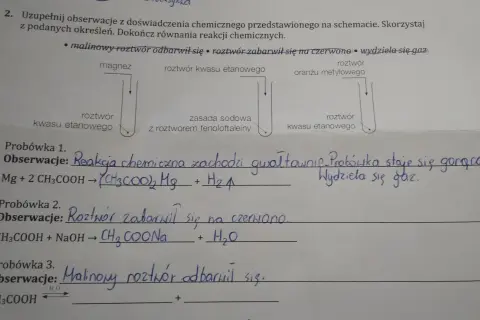 2. Uzupełnij obserwacje z doświadczenia chemicznego przedstawionego na schemacie. Skorzystaj
z podanych określeń. Dokończ równania reakcji chemicznych.
• malinowy roztwór odbarwił się • roztwór zabarwił się na czerwono • wydziela się gaz
magnez roztwór kwasu etanowego roztwór
oranżu metylowego
roztwór
kwasu etanowego
zasada sodowa
z roztworem fenoloftaleiny
roztwór
kwasu etanowego
Probówka 1.
Obserwacje: Reakcja chemiczna zachodzi gwałtownie. Probówka staje się gorąca
Wydziela się gaz.
Mg + 2 CH₃COOH → (CH₃COO)₂Mg + H₂↑
Probówka 2.
Obserwacje: Roztwór zabarwił się na czerwono.
CH₃COOH + NaOH → CH₃COONa + H₂O
robówka 3.
bserwacje: Malinowy roztwór odbarwił się.
₃COOH ⟷ +